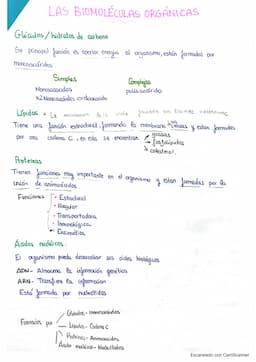 LAS BIOMOLÉCULAS ORGÁNICAS
Glúcidos / hidratos de carbono
Su principal función es aportar energía al organismo, están formados por
monosacáridos.
Simples
Complejos
Monosacáridos
polisacárido
x2 Monosacáridos
Lípidos
Tiene una función estructural, formando la membrana y están formadas
por una cadena C, en ella se encuentran
grasas
fosfolípidos
colesterol.
Proteínas
Tienen funciones muy importante en el organismo y están formadas por la
unión de aminoácidos
Funciones
• Estructural
• Regular
• Transportadora
• Inmunológica
• Enzimática
Ácidos nucleicos.
El organismo pueda desarrollar sus ciclos biológicos
ADN - Almacena la información genética
ARN - Transfiere la información
Está formada por nucleótidos
Formados por
Glúcidos - monosacáridos
Lípidos - Cadena C
Proteína - Aminoácidos
Ácido nucléico - Nucleótidos
Escaneado con CamScanner